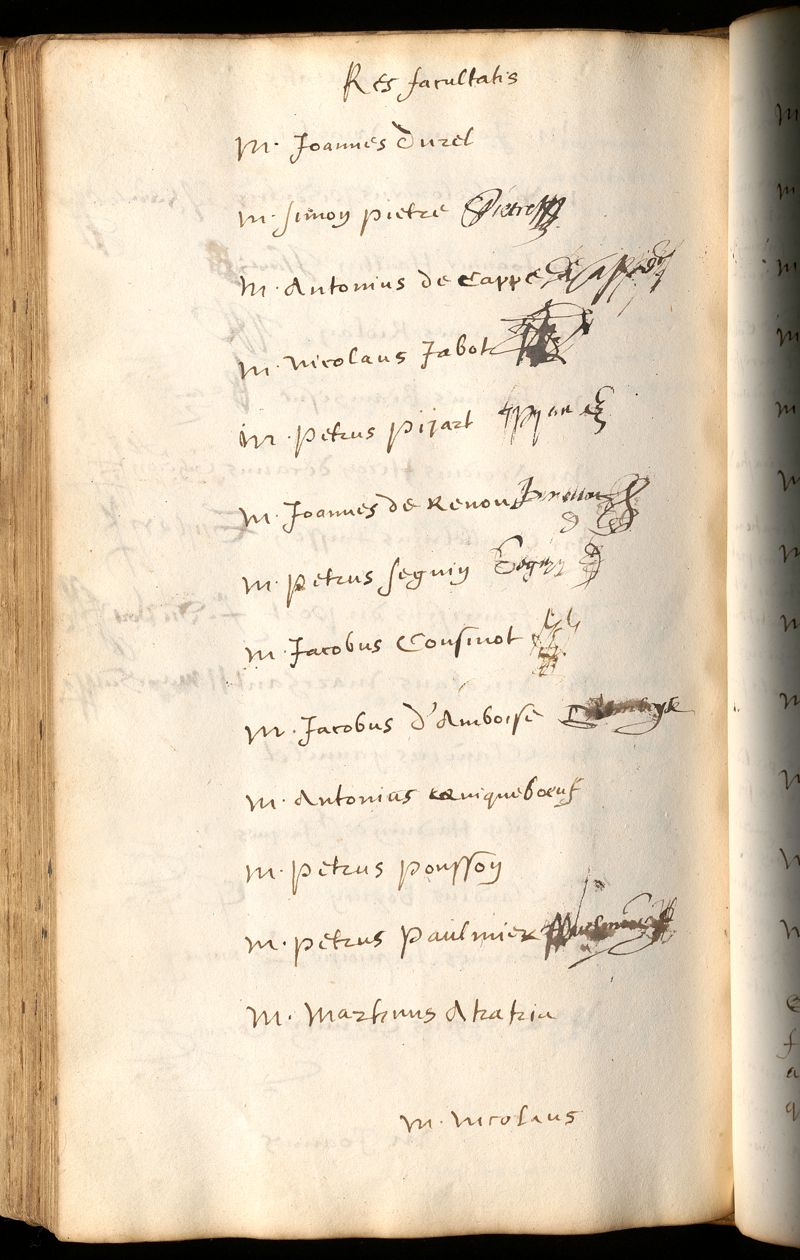 Res facultatis
M. Joannes Durel
M. Simon Pietre Pietre
M. Antonius de Cappe
M. Nicolaus Jabot
M. Petrus Pijart
M. Joannes de Renou
M. Petrus Seguin Seguin
M. Jacobus Cousinot
M. Jacobus d'Amboise
M. Antonius Quiqueboeuf
M. Petrus Pousson
M. Petrus Paulmier
M. Martinus Akakia
M. Nicolaus